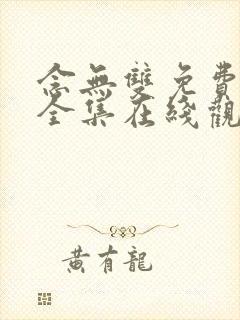 念無雙免費
全集在綫觀
黃有龍